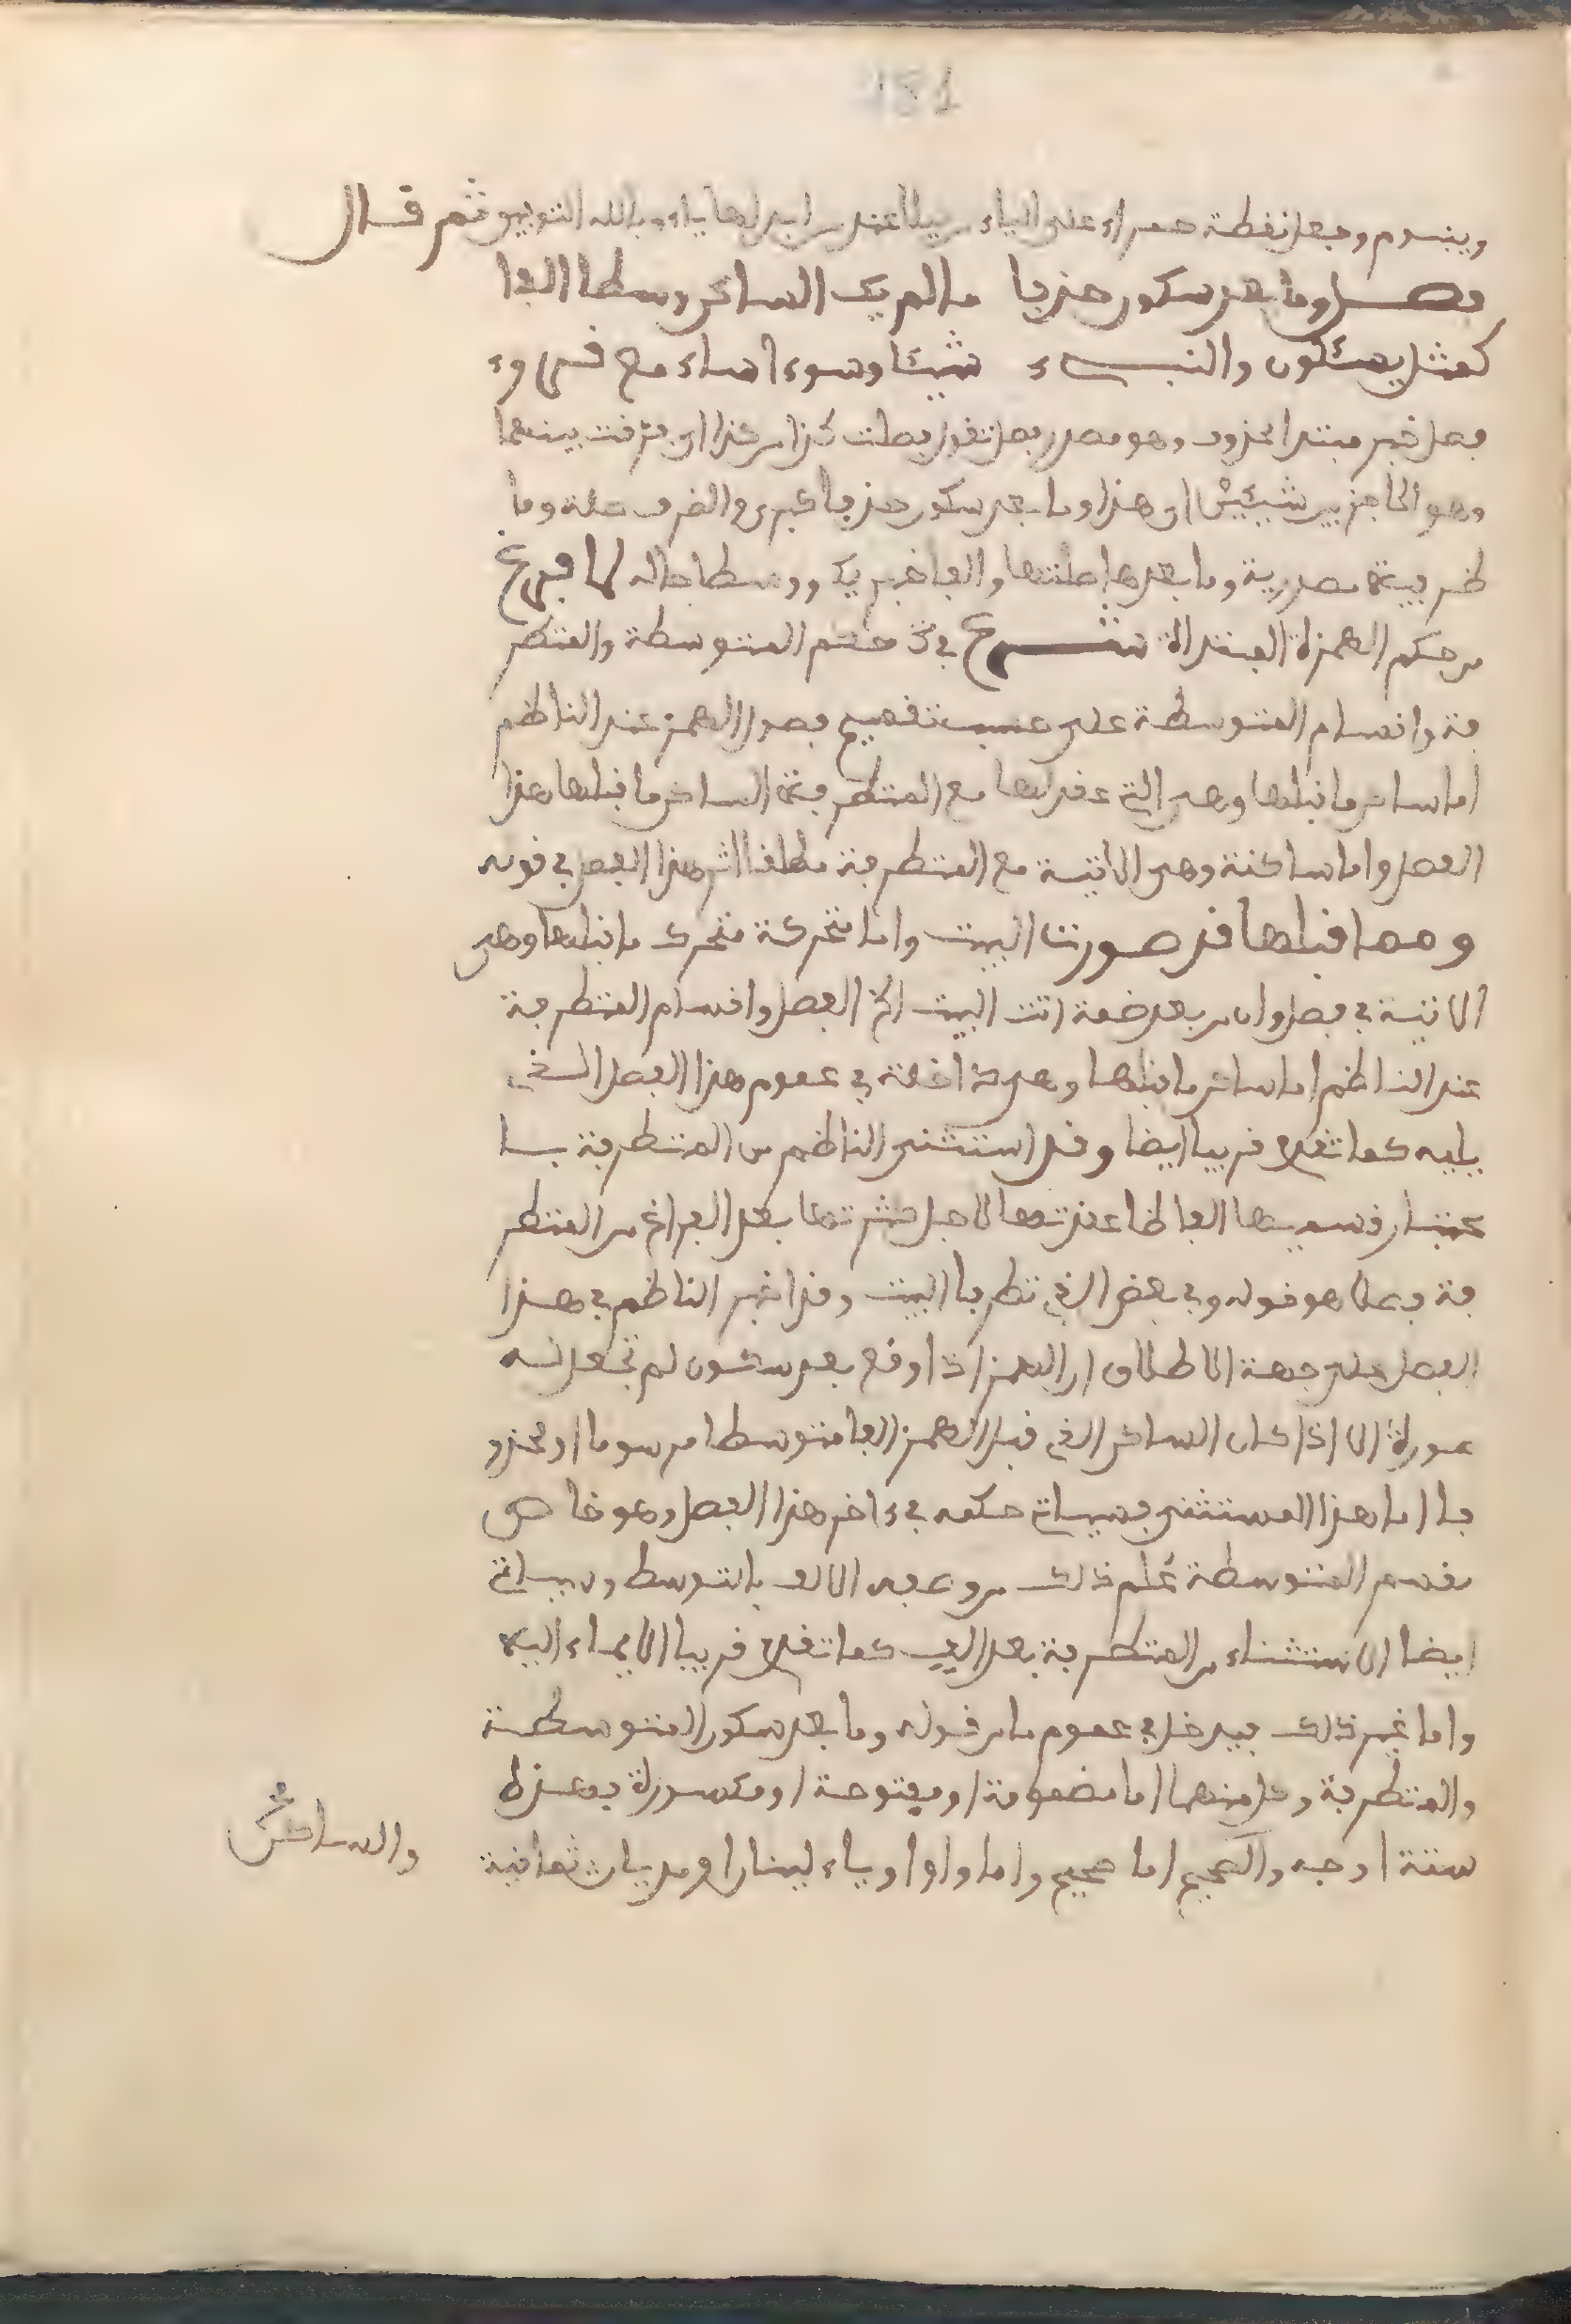 131
وبنسوم وجعل نقطة حمراء على الياء بدلا عند من ابدلها ياء وبالله التوفيق ثم قال
فصل وما بعد سكون حذفا ما لم يك الساكن وسطا الفا
كمثل يسئلون والنبيء شيئا وسوءا ساء مع قروء
فصل خبر مبتدا محذوف وهو مصدر فصل تقول فصلت كذا من كذا اي فرقت بينهما
وهو الحاجز بين شيئين اي هذا وما بعد سكون حذفا كبرى والظرف صلة وما
ظرفية مصدرية وما بعدها صلتها والفا خبر يك ووسطا حاله لما فرغ
من حكم الهمزة المبتداة شرع في حكم المتوسطة والمتطر
فة واقسام المتوسطة على حسب تقسيم فصول الهمز عند الناظم
اما ساكن ما قبلها وهي التي عقد لها مع المتطرفة الساكن ما قبلها هذا
الفصل واما ساكنة وهي الاتية مع المتطرفة مطلقا اثر هذا الفصل في قوله
ومما قبلها قد صورت البيت واما متحركة متحرك ما قبلها وهي
الاتية في فصل وان من بعد ضمة اتت البيت الخ الفصل واقسام المتطرفة
عند الناظم اما ساكن ما قبلها وهي داخلة في عموم هذا الفصل الذي
يليه كما تقدم قريبا ايضا وقد استثنى الناظم من المتطرفة با
عتبار قسميها الفاظا عقد لها لاجل كثرتها بعد الفراغ من المتطر
فة فصلا هو قوله وفي بعض الذي تطرفا البيت وقد اخبر الناظم في هذا
الفصل على جهة الاطلاق ان الهمز اذا وقع بعد سكون لم تجعل له
صورة الا اذا كان الساكن الذي قبل الهمز الفا متوسطا مرسوما او محذو
فا اما هذا المستثنى فسياتي حكمه في ءاخر هذا الفصل وهو خاص
بقسم المتوسطة علم ذلك من وصفه الالف بالتوسط وسياتي
ايضا الاستثناء من المتطرفة بعد الف كما تقدم قريبا الايماء اليه
واما غير ذلك فيدخل في عموم ما من قوله وما بعد سكون المتوسطة
والمتطرفة وكل منهما اما مضمومة او مفتوحة او مكسورة فهذه
ستة اوجه والصحيح اما صحيح واما واو او ياء لينان او مديان ثمانية
والساكن